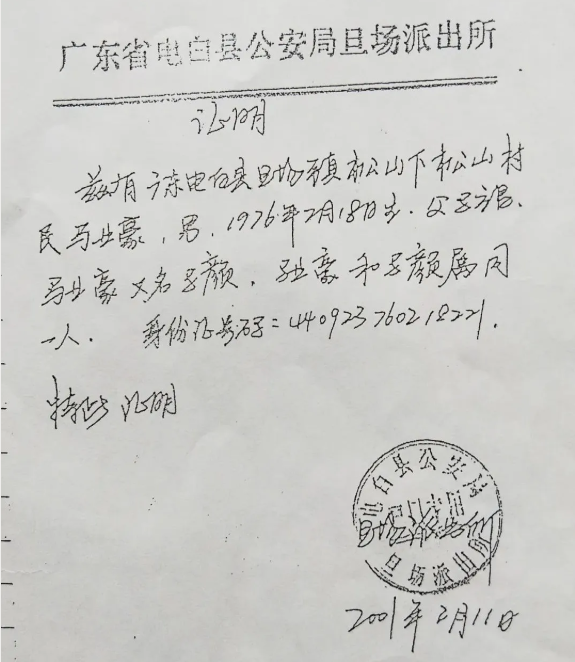 广东省电白县公安局旦场派出所
证明
兹有广东电白县旦场镇松山下松山村
民马业豪，男，1976年2月18日生．父
马业豪又名子颜，业豪和子颜属同
一人．身份证号码=440923760218221．
特此证明
电白县公安局
旦场派出所
2001年2月11日